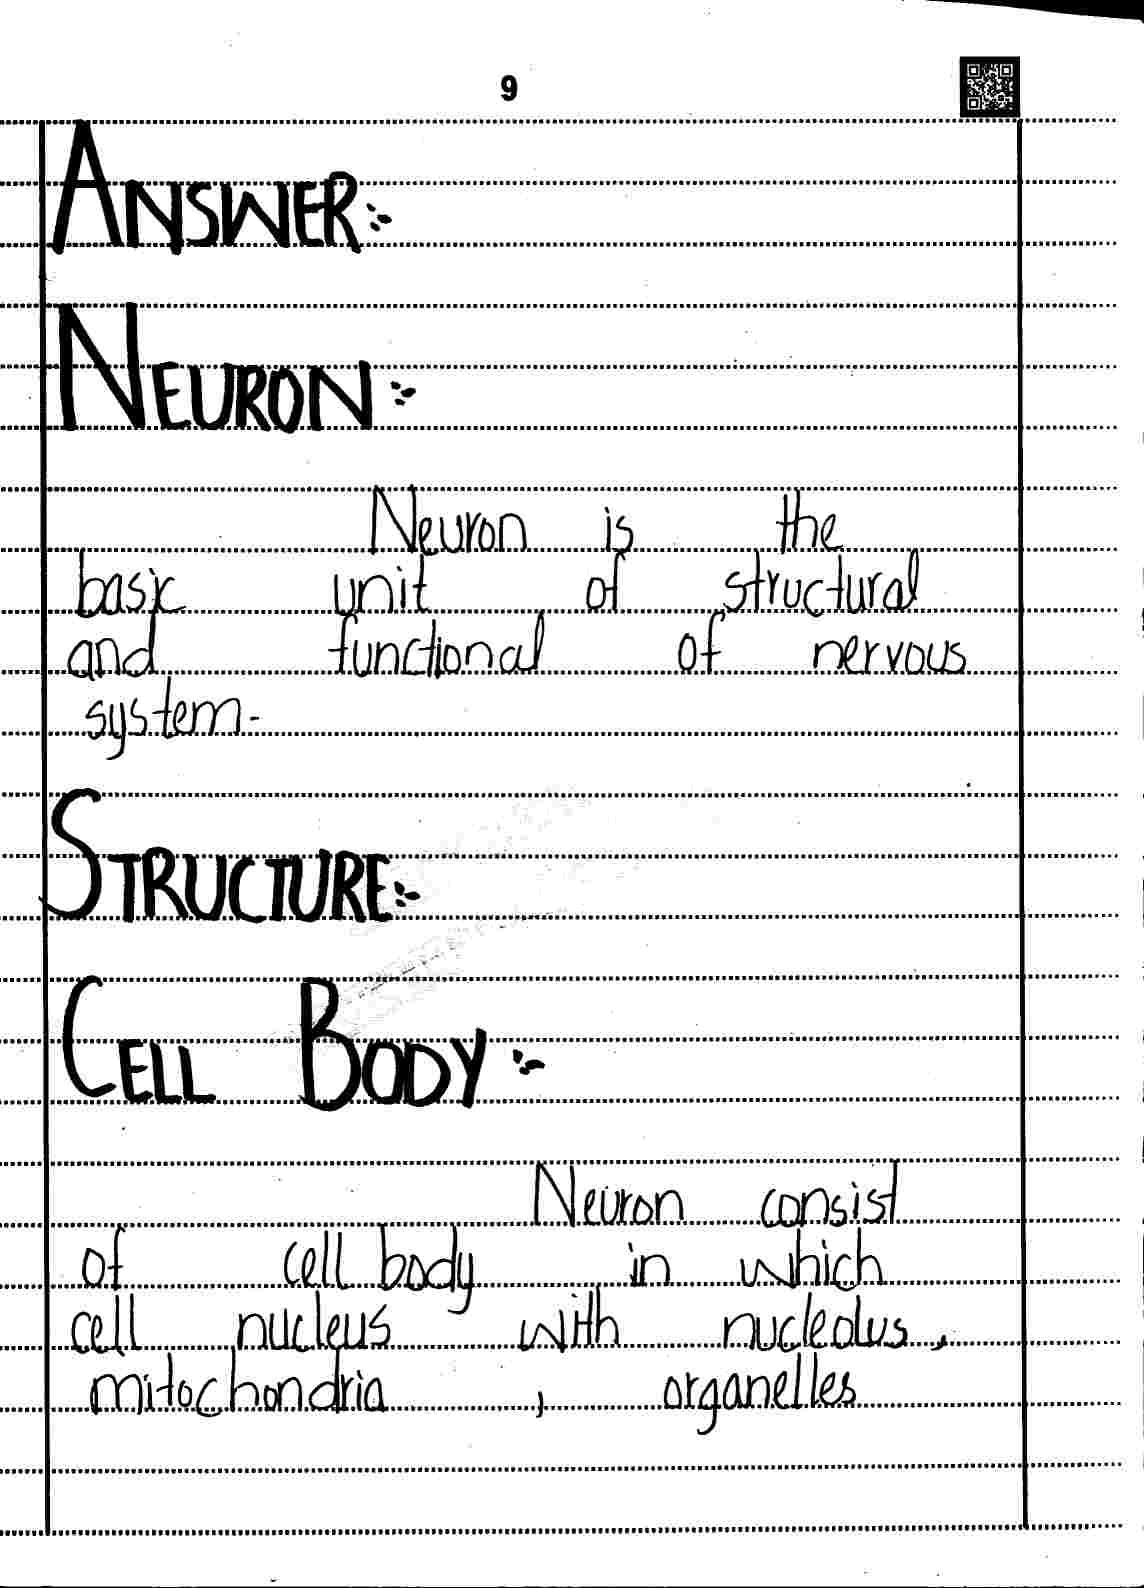 9
ANSWER:-
NEURON:-
Neuron is the
basic unit of structural
and functional of nervous
system.
STRUCTURE:-
CELL BODY:-
Neuron consist
of cell body in which
cell nucleus with nucleolus,
mitochondria , organelles